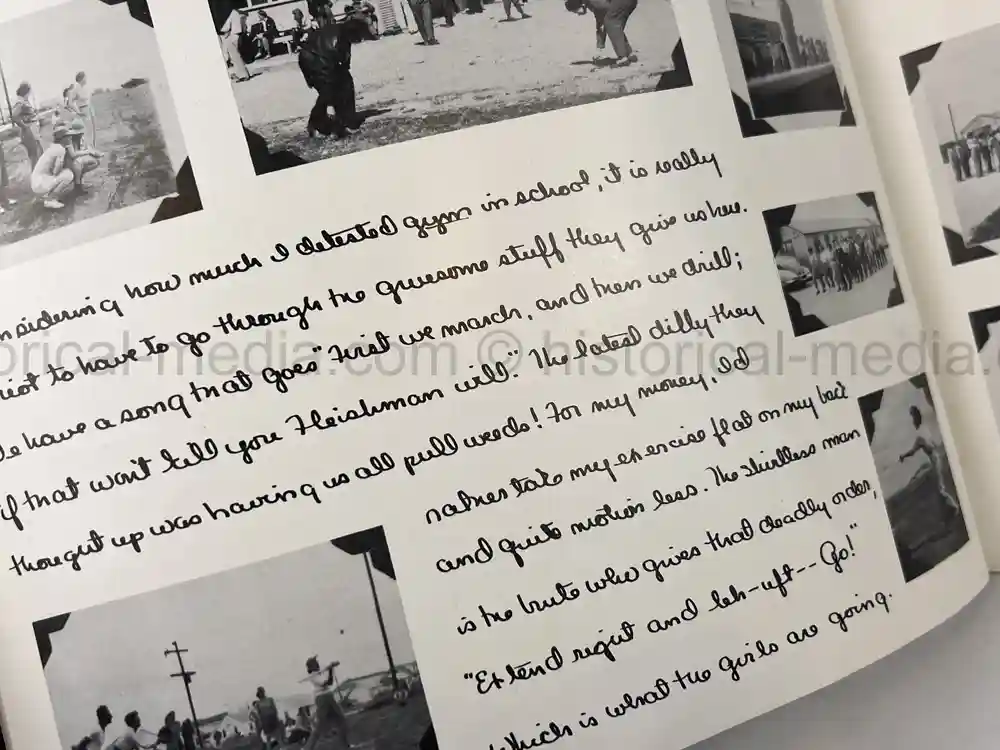 nsidering how much I detested gym in school, it is really
riot to have to go through the gruesome stuff they give us here.
e have a song that goes "First we march, and then we drill;
if that won't kill you Fleishman will." The latest dilly they
thought up was having us all pull weeds! For my money, I'd
rather take my exercise flat on my back
and quite motionless. The shirtless man
is the brute who gives that deadly order,
"Extend right and leh-uft-- Go!"
Which is what the girls are doing.
orical-media.com © historical-media.